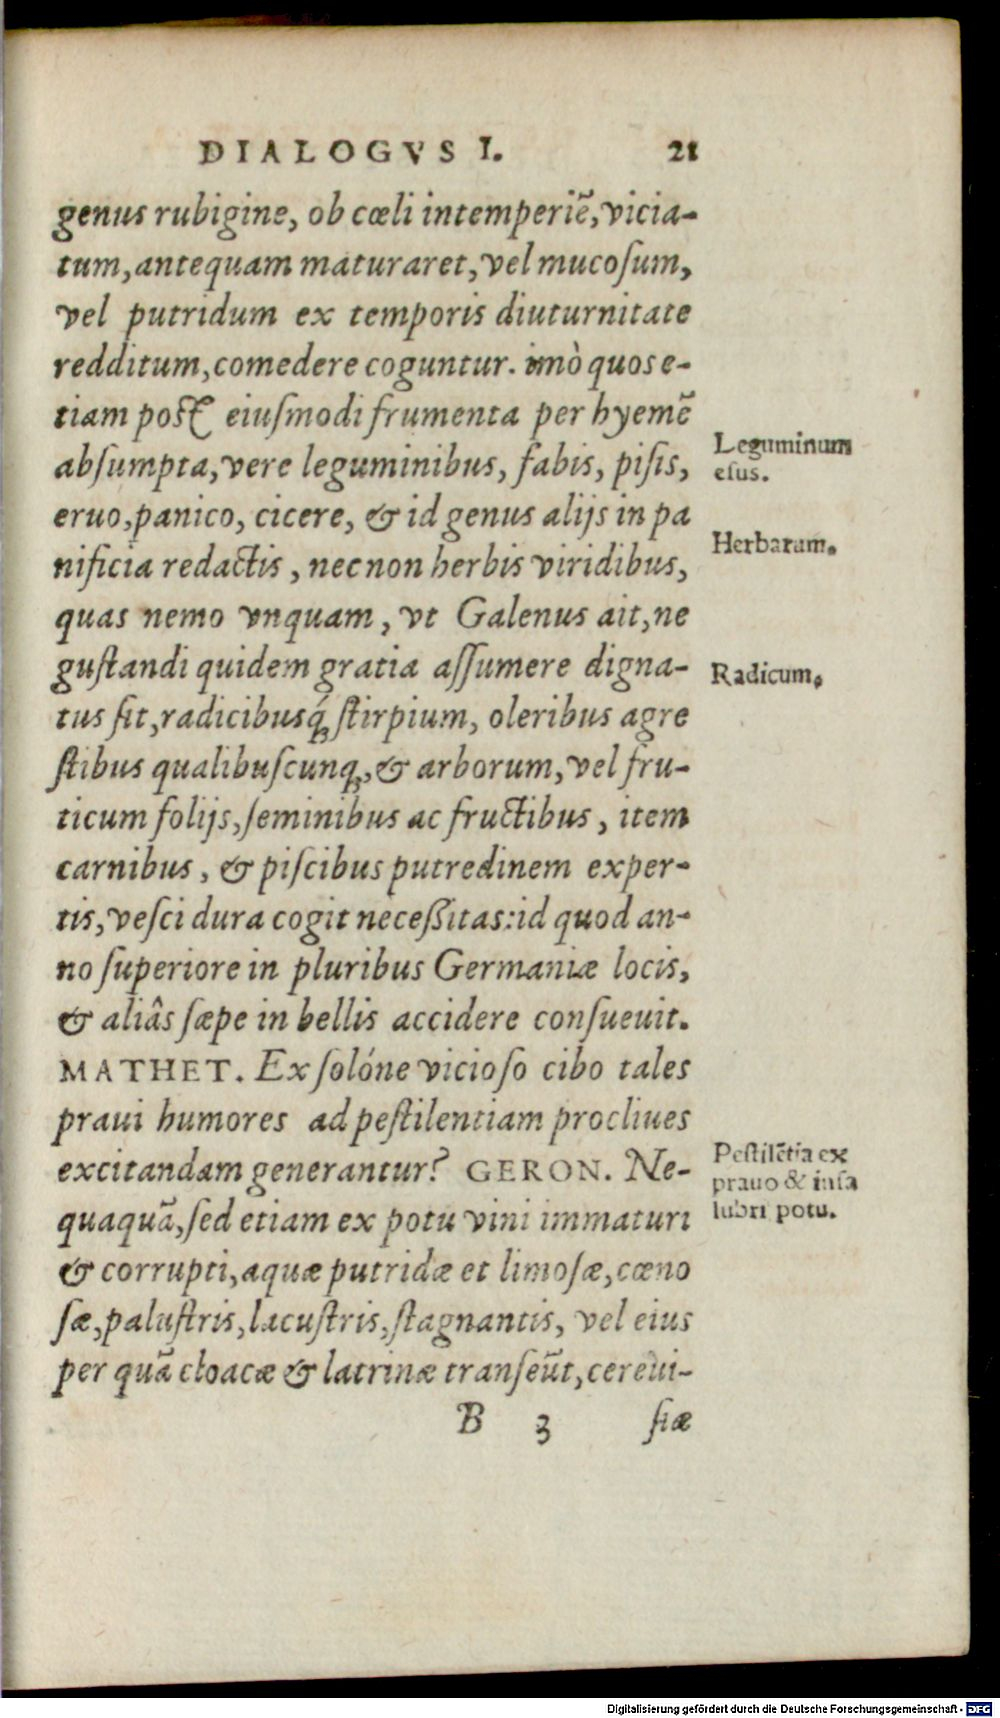 DIALOGVS I. 21
genus rubigine, ob cœli intemperiẽ, vicia-
tum, antequam maturaret, vel mucoſum,
vel putridum ex temporis diuturnitate
redditum, comedere coguntur. imò quos e-
tiam poſtꝗ̃ eiuſmodi frumenta per hyemẽ
abſumpta, vere leguminibus, fabis, piſis,
Leguminum
eſus.
eruo, panico, cicere, & id genus alijs in pa
Herbarum.
nificia redactis, nec non herbis viridibus,
quas nemo vnquam, vt Galenus ait, ne
guſtandi quidem gratia aſſumere digna-
Radicum.
tus ſit, radicibusq́ꝫ ſtirpium, oleribus agre
ſtibus qualibuſcunqꝫ, & arborum, vel fru-
ticum folijs, ſeminibus ac fructibus, item
carnibus, & piſcibus putredinem exper-
tis, veſci dura cogit neceßitas: id quod an-
no ſuperiore in pluribus Germaniæ locis,
& aliâs ſæpe in bellis accidere conſueuit.
MATHET. Ex ſolóne vicioſo cibo tales
praui humores ad peſtilentiam procliues
excitandam generantur? GERON. Ne-
Peſtilẽtia ex
prauo & inſa
lubri potu.
quaquã, ſed etiam ex potu vini immaturi
& corrupti, aquæ putridæ et limoſæ, cœno
ſæ, paluſtris, lacuſtris, ſtagnantis, vel eius
per quã cloacæ & latrinæ tranſeũt, cereui-
B 3 ſiæ
Digitalisierung gefördert durch die Deutsche Forschungsgemeinschaft - DFG